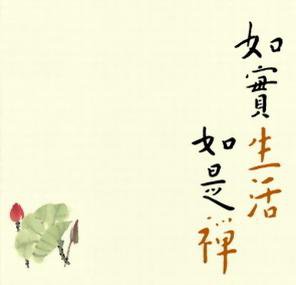 如實生活
如是禪